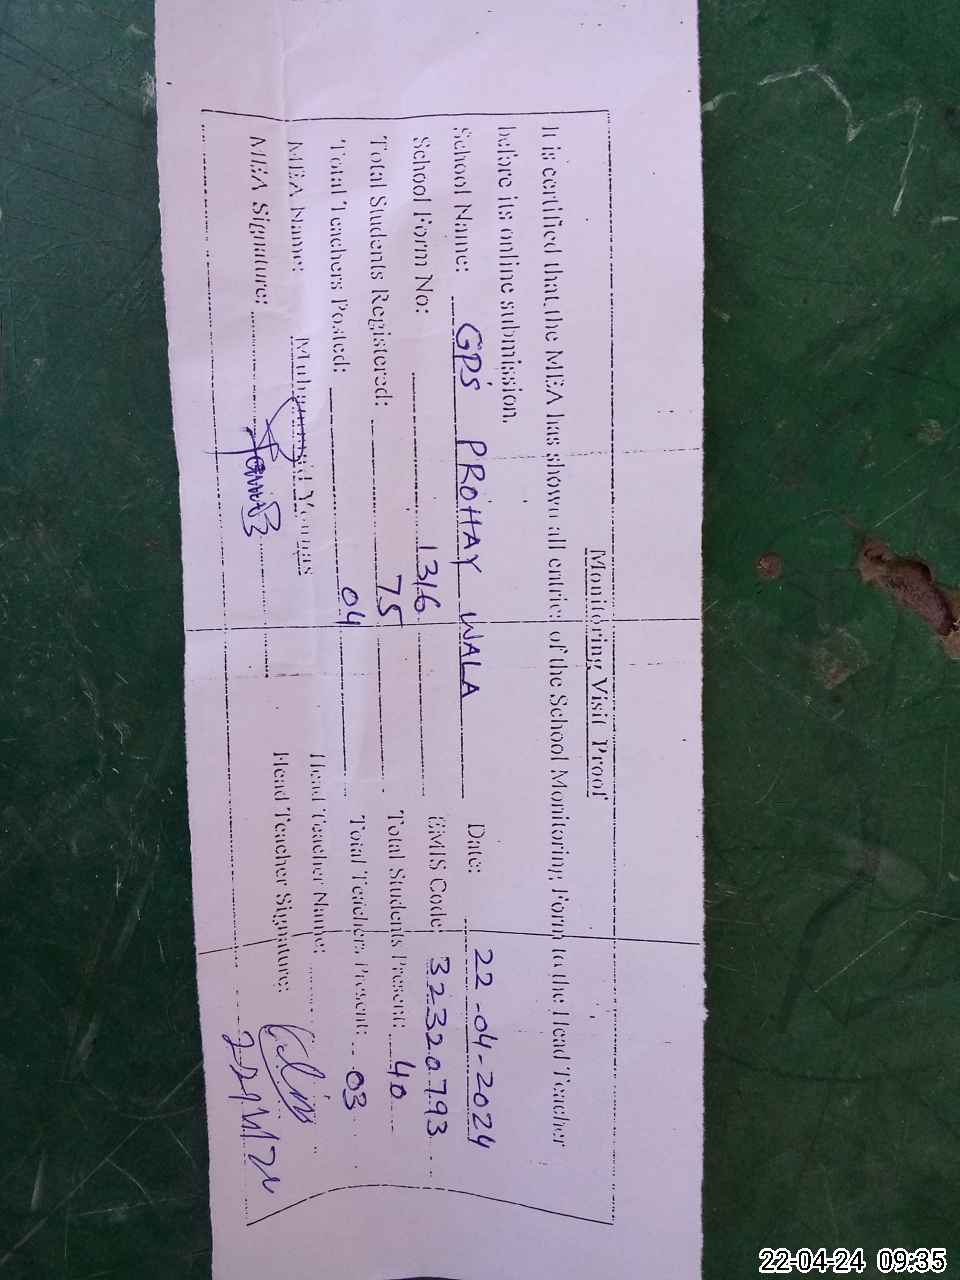 Monitoring Visit Proof
It is certified that, the MEA has shown all entries of the School Monitoring Form to the Head Teacher
before its online submission.
School Name: GPS PROHAY WALA Date: 22-04-2024
School Form No: 1316 EMIS Code: 32320793
Total Students Registered: 75 Total Students Present: 40
Total Teachers Posted: 04 Total Teachers Present: 03
MEA Name: Muhammad Younas Head Teacher Name:
MEA Signature: Head Teacher Signature:
22-04-24 09:35